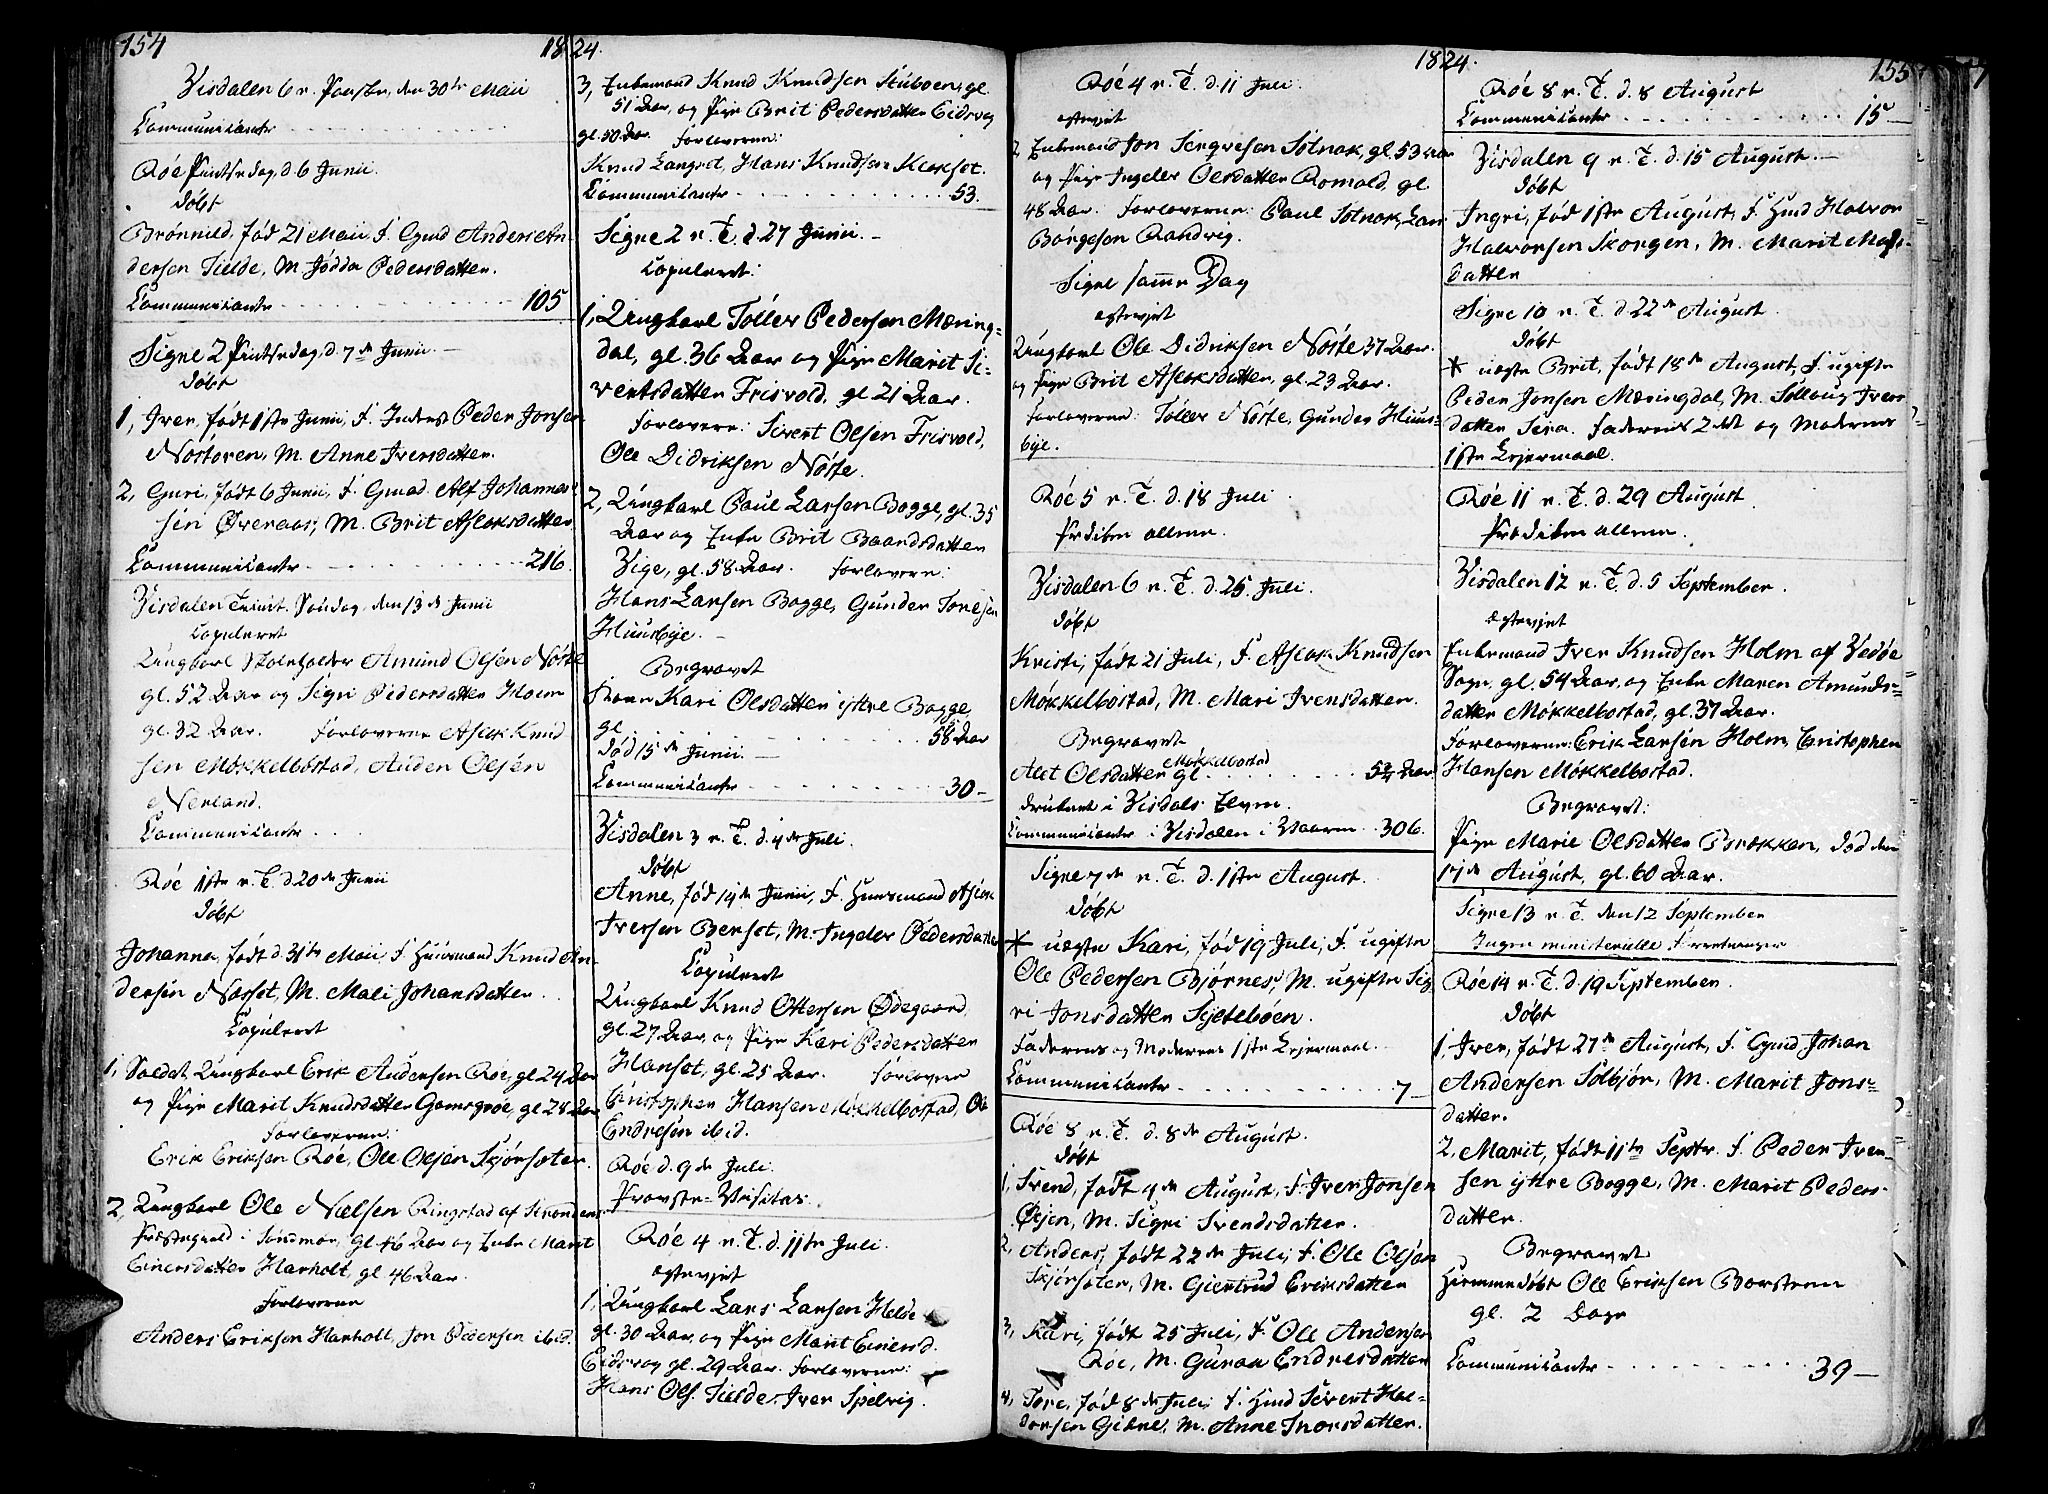 154
1824.
Visdalen 6 n. Paaske, den 30te Maii
Communicanter
Røe Pintsedag, d. 6 Junii.
Døbt
Brønnild, fød 21 Maii, F. Gmd Anders An-
dersen Tielde, M. Jødda Pedersdatter.
Communicanter 105.
Signe 2 Pintsedag, d. 7de Junii.
Døbt
1, Iver, født 1ste Junii, F. Inderst Peder Jonsen
Nøstøren, M. Anne Iversdatter.
2, Guri, født 6 Junii, F. Gmd Alf Johannes-
sen Øveraas, M. Brit Aslaksdatter
Communicanter 216.
Visdalen Trinit. Søndag, den 13de Junii
Copuleret
Ungkarl Skoleholder Amund Olsen Nøste
gl. 52 Aar og Sigri Pedersdatter Holm
gl. 32 Aar. Forloverne Aslak Knud
sen Møkkelbostad, Auden Olsen
Nerland.
Communicanter
Røe 1ste n. T. d. 20de Junii
Døbt
Johanna, født d. 31te Maii, F. Huusmand Knud An-
dersen Nørset, M. Mali Johansdatter.
Copuleret
1, Soldat, Ungkarl Erik Andersen Røe, gl. 24 Aar
og Pige Marit Knudsdatter Gamsgrøe, gl. 28 Aar
Forloverne:
Erik Eriksen Røe, Ole Olsen Skjørsæter.
2, Ungkarl Ole Nielsen Ringstad af Strandens
Præstegield i Søndmør, gl. 46 Aar og Enke Marit
Einersdatter Harholt, gl 46 Aar.
Forloverne
Anders Eriksen Harholt, Jon Pedersen ibid.
3, Enkemand Knud Knudsen Stuboen, gl.
51 Aar, og Pige Brit Pedersdatter Eidsvog
gl. 50 Aar. Forloverne:
Knud Langset, Hans Knudsen Kleset.
Communicanter 53.
Signe 2 n. T. d. 27 Junii.
Copuleret:
1, Ungkarl Tøller Pedersen Mæring-
dal, gl. 36 Aar og Pige Marit Si-
vertsdatter Frisvold, gl 21 Aar.
Forlovere: Sivert Olsen Frisvold,
Ole Didriksen Nøste.
2, Ungkarl Paul Larsen Bogge, gl. 35
Aar og Enke Brit Baardsdatter
Vige, gl. 58 Aar. Forlovere:
Hans Larsen Bogge, Gunder Toresen
Huusbye.
Begravet
Kari Olsdatter yttre Bogge
gl. 58 Aar
død 15de Junii.
Communicanter 30
Visdalen 3 n. T. d. 4de Juli.
Døbt
Anne, fød 14de Junii, F. Huusmand Aslak
Iversen Berset, M. Ingeler Pedersdatter
Copuleret
Ungkarl Knud Ottersen Ødegaard
gl. 27 Aar, og Pige Kari Pedersdatter
Hanset, gl. 25 Aar. Forlovere
Christopher Hansen Møkkelbostad, Ole
Endresen ibid.
Røe d. 9de Juli.
Provste-Visitas.
Røe 4 n. T. d. 11te Juli.
Egteviet
1, Ungkarl Lars Larsen Helde
gl. 30 Aar, og Pige Marit Einersd.
Eidsvog gl. 29 Aar. Forloverne:
Hans Ols. Tielde, Iver Spelvig.
1824.
155
Røe 4 n. T. d. 11 Juli.
Egteviet
2, Enkemand Jon Sergvesen Sotnak, gl. 53 Aar
og Pige Ingeler Olsdatter Romold, gl.
48 Aar. Forloverne: Paul Sotnak, Lars
Børgeson Randvig.
Signe samme Dag
Egteviet
Ungkarl Ole Didriksen Nøste 37 Aar.
og Pige Brit Aslaksdatter, gl. 23 Aar.
Forloverne: Tøller Nøste, Gunder Huus-
bye.
Røe 5 n. T. d. 18 Juli.
Prædiken allene.
Visdalen 6 n. T. d. 25. Juli.
Døbt
Kristi, født 21 Juli, F. Aslak Knudsen
Møkkelbostad, M. Mari Iversdatter.
Begravet
Alet Olsdatter Møkkelbostad gl. Aar
druknet i Visdals Elven.
Communicanter i Visdalen i Vaaren 306.
Signe 7de n. T. d. 1ste August.
Døbt
* uægte Kari, fød 19 Juli, F. ugifte
Ole Pedersen Bjørnes, M. ugifte Sig-
ri Jonsdatter Syltebøen.
Faderens og Moderens 1ste Lejermaal.
Communicanter 7
Røe 8 n. T. d. 8de August.
Døbt
1, Svend, født 4de August, F. Iver Jonsen
Øijen, M. Sigri Svendsdatter.
2, Anders, født 22de Juli, F. Ole Olsen
Skjørsæter, M. Giertrud Eriksdatter
3, Kari, født 25 Juli, F. Ole Andersen
Røe, M. Guroe Endresdatter
4, Tore, fød 8de Juli, F. Hmd Sivert Hal-
dorsen Gikne, M. Anne Thorsdatter.
Røe 8 n. T. d. 8 August
Communicanter 15
Visdalen 9 n. T. d. 15 August.
Døbt
Ingri, fød 1ste August, F. Hmd Halvor
Halvorsen Skorgen, M. Marit Mads-
datter
Signe 10 n. T. d. 22de August.
Døbt
* uægte Brit, født 18de August, F. ugifte
Peder Jonsen Mæringdal, M. Sølloug Ivers
datter Sira. Faderens 2det og Moderens
1ste Lejermaal.
Røe 11 n. T. d. 29 August
Prædiken allene.
Visdalen 12 n. T. d. 5 September.
Egteviet
Enkemand Iver Knudsen Holm af Vedøe
Sogn, gl. 54 Aar, og Enke Maren Amunds-
datter Møkkelbostad, gl. 37 Aar.
Forloverne: Erik Larsen Holm, Christopher
Hansen Møkkelbostad.
Begravet:
Pige Marie Olsdatter Brækken, død den
17de August, gl. 60 Aar.
Signe 13 n. T. den 12 September
Ingen ministerielle Forretninger
Røe 14 n. T. d. 19 September.
Døbt
1, Iver, født 27de August, F. Gmd Johan
Andersen Solbjør, M. Marit Jons-
datter.
2, Marit, født 11te Septr. F. Peder Iver-
sen yttre Bogge, M. Marit Peders-
datter.
Begravet
Hiemmedøbt Ole Eriksen
gl. 2 Dage
Communicanter 39